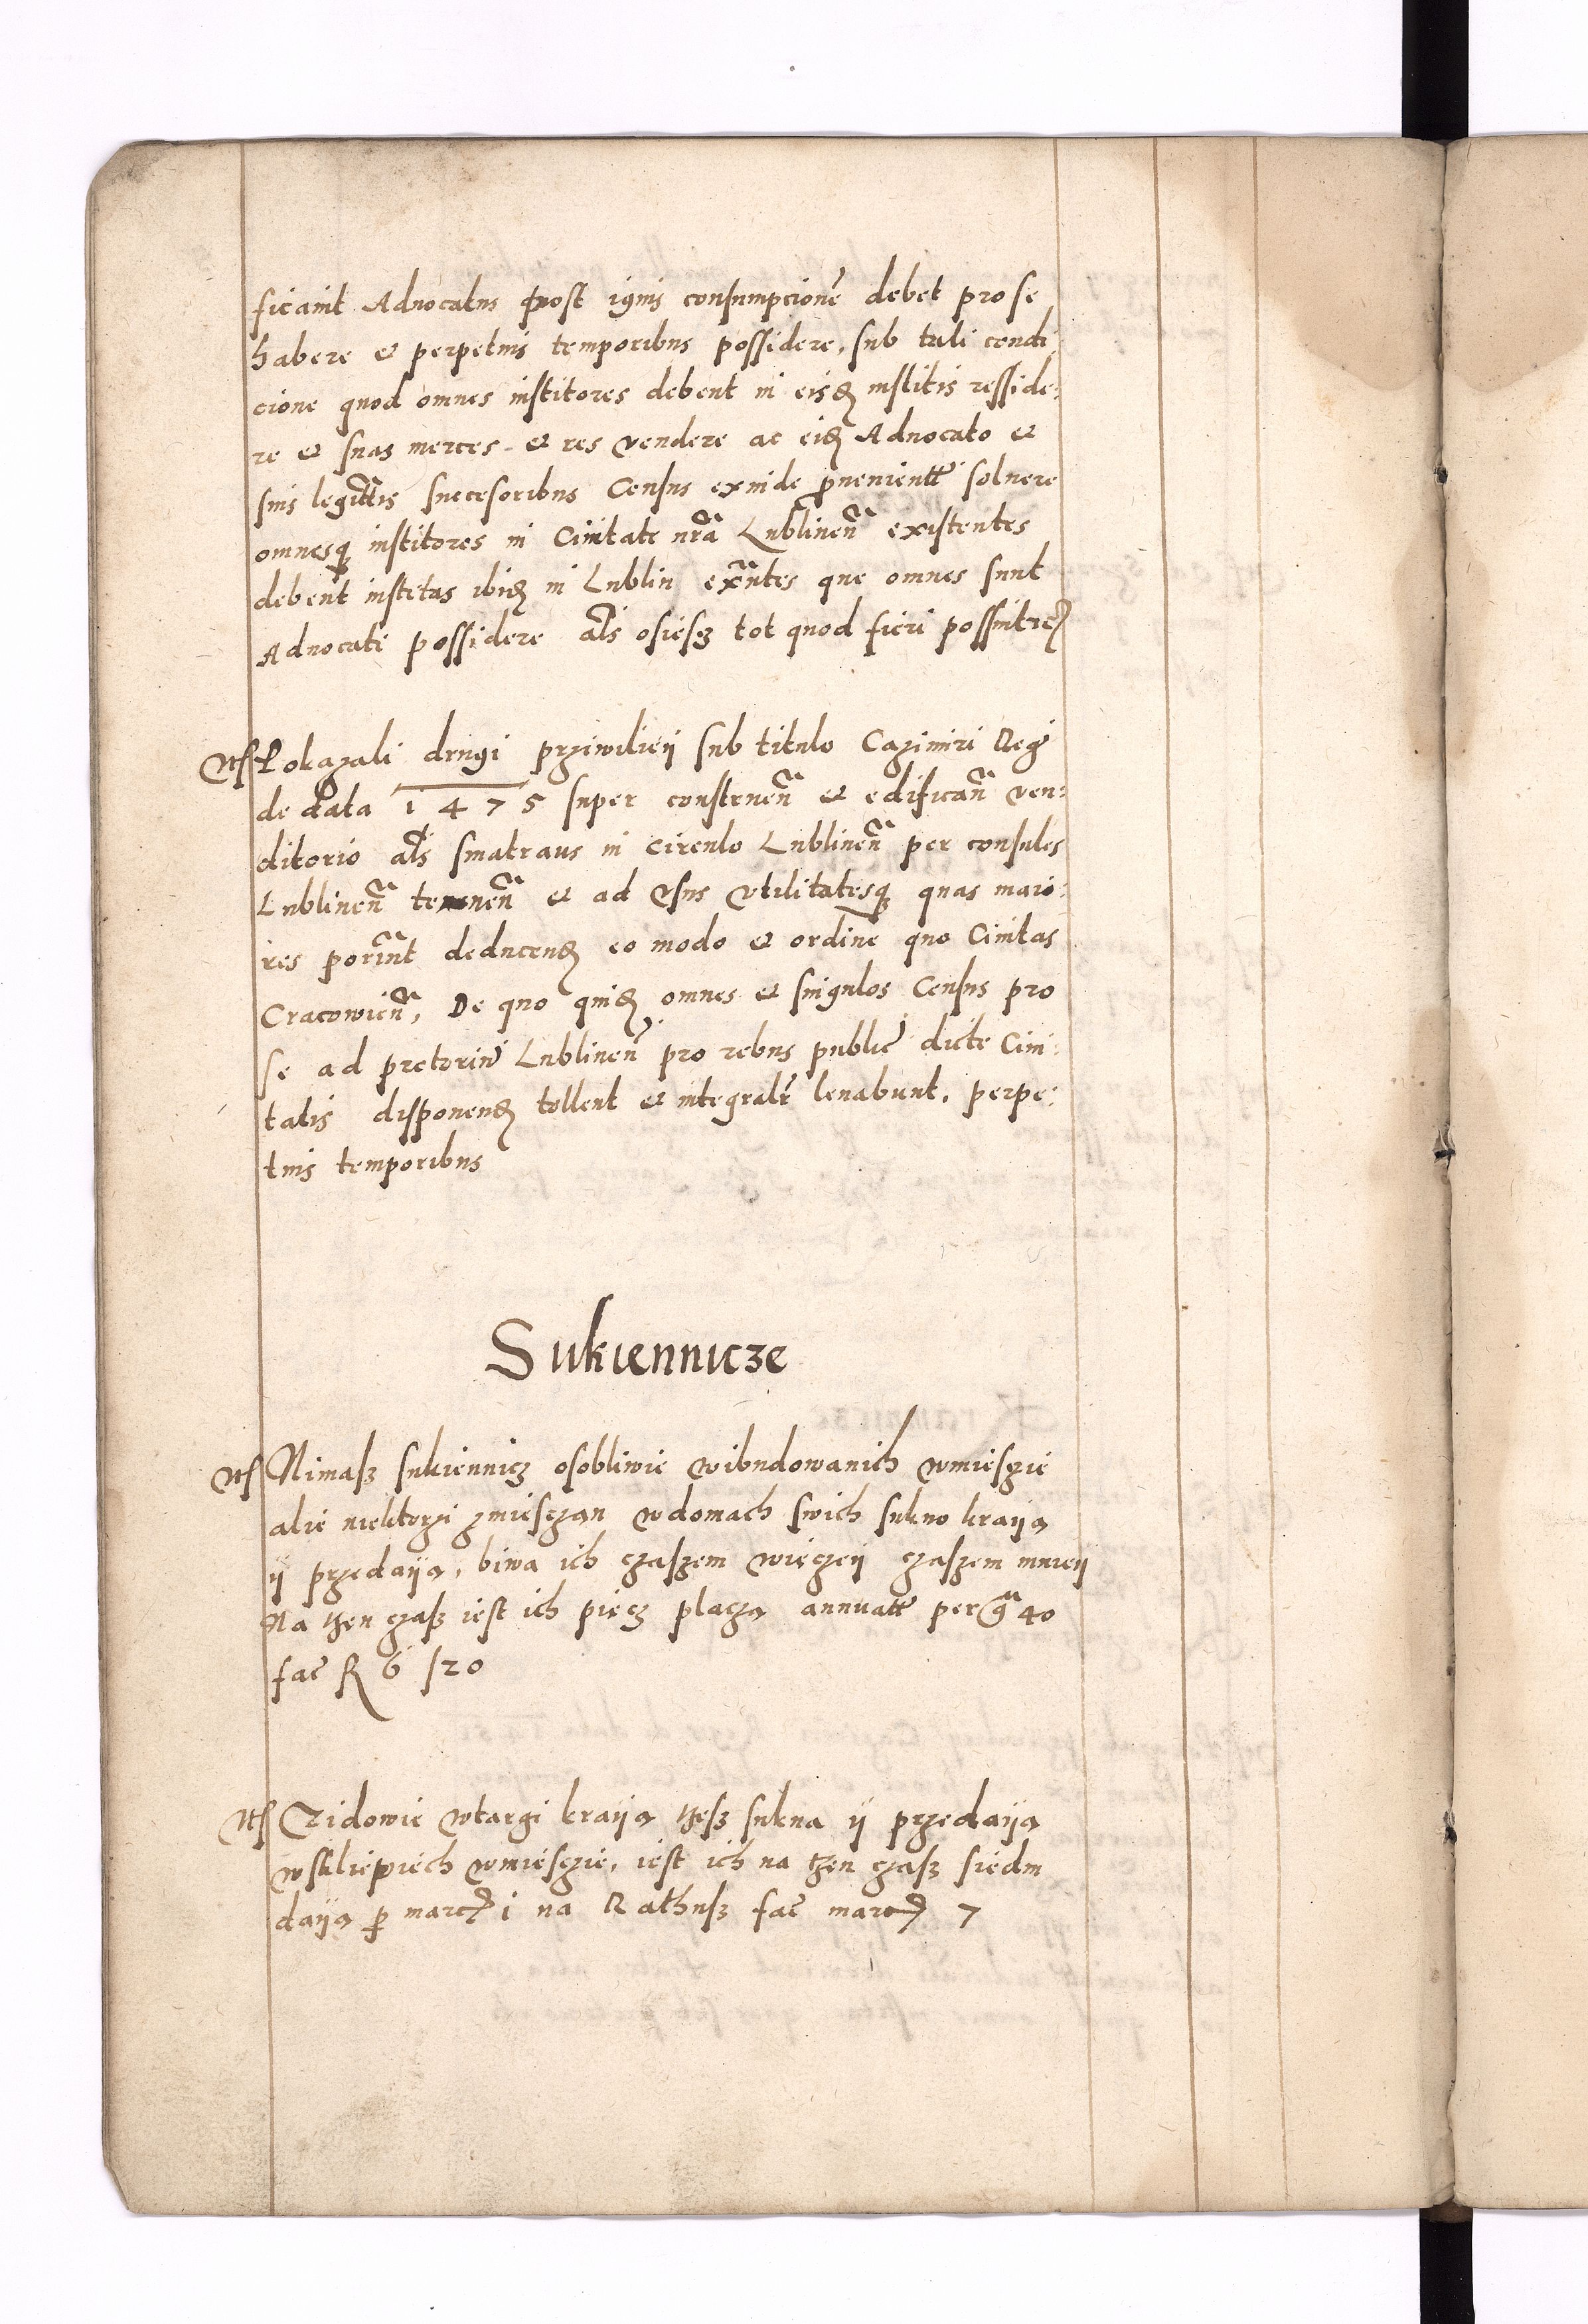 ficauit Aduocatus post ignis consumpcionē debet pro se
habere et perpetuis temporibus possidere, sub tali condi
cione quod omnes institores debent in eisdē institis resside:
re et suas merces et res vendere ac eidē Aduocato et
suis legittīs successoribus Census exinde ꝓuenientē soluere
omnesq̨ institores in Ciuitate nrā Lublineñ existentes
debent institas ibidē in Lublin exn̄tes que omnes sunt
Aduocati possidere als̄ osiescz tot quod fieri possint
Its Pokazali drugi prziwiliey sub titulo Cazimiri Reg̃
de data 1475 super construeñ et edificañ ven:
ditorio als̄ smatraus in circulo Lublineñ per consules
Lublineñ teneñ et ad vsus vtilitatesq̨ quas maio:
res porīnt deducendē eo modo et ordine quo Ciuitas
Cracowieñ, De quo quidē omnes et singulos Census pro
se ad pretoriū Lublineñ pro rebus public̄ dicte Ciui:
tatis disponendē tollent et integralr̄ leuabunt, perpe:
tuis temporibus
Sukiennicze
Its Nimasz sukiennicz osobliwie wibudowanich wmiesczie
alie niektorzi zmiesczan wdomach swich sukno kraiją
ij przedaiją, biwa ich czaszem wieczeij czaszem mnieij
Na tzen czasz iest ich piecz placzą annuatī per g̃ 40
fac̄ ƒ 6 /20
Its Zidowie wtargi kraiją tzesz sukna ij przedaiją
wskliepiech wmiesczie, iest ich na tzen czasz siedm
daiją ꝑ marc̄ 1 na Rathusz fac̄ marc̄ 7